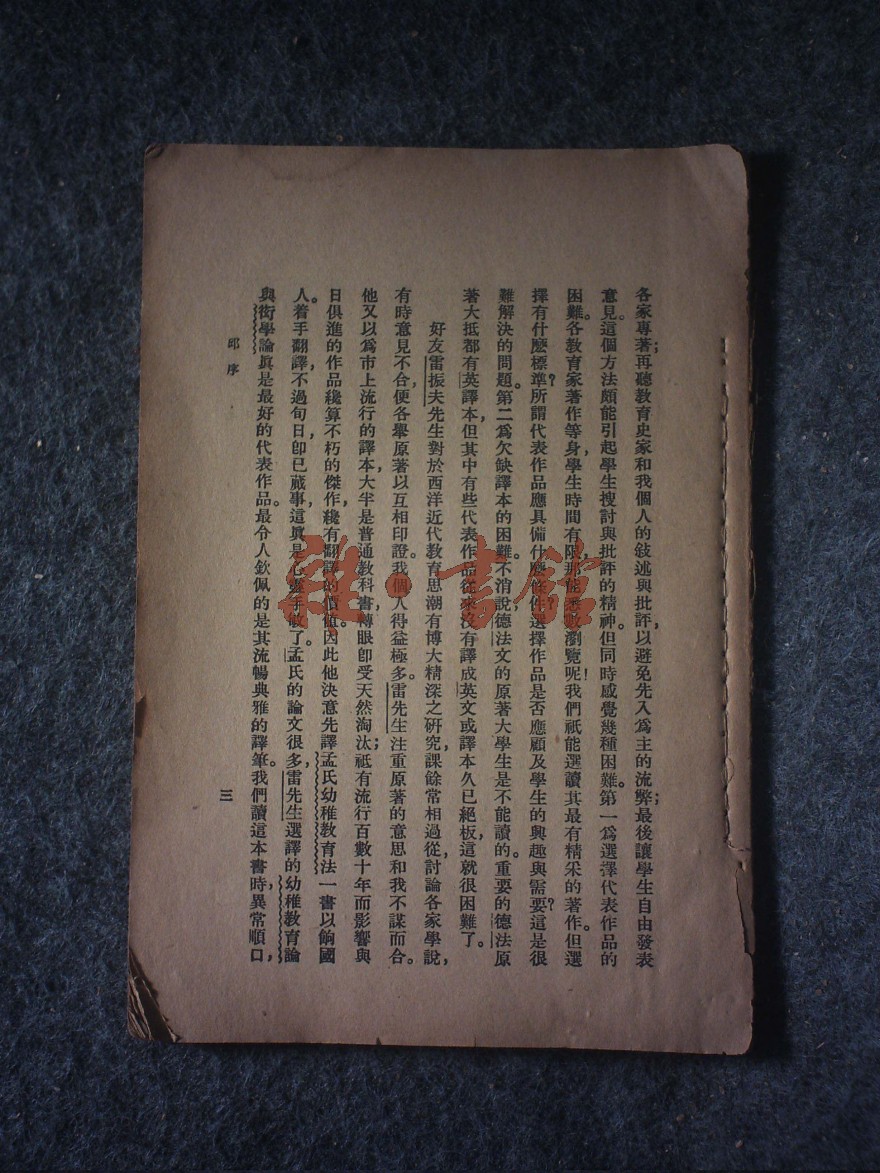 各家專著；再聽教育史家和我個人的敍述與批評，以避免先入爲主的流弊；最後讓學生自由發表
意見。這個方法頗能引起學生搜討與批評的精神。但同時感覺幾種困難。第一爲選擇代表作品的
困難。各教育家著作等身，學生時間有限，那能悉數瀏覽呢！我們祇能選讀其最有精采的著作。但選
擇有什麽標準？所謂代表作品應具備什麽條件？選擇作品是否應顧及學生的興趣與需要？這是很
難解決的問題。第二爲欠缺譯本的困難。不消說，德法文的原著大學生是不能讀的。重要的德法原
著大抵都有英譯本，但其中有些代表作品從來沒有譯成英文或譯本久已絕板，這就很困難了。
好友雷振夫先生對於西洋近代教育思潮有博大精深之研究，課餘常相過從，討論各家學說，
有時意見不合，便各舉原著以互相印證。我個人得益極多。雷先生注重原著的意思和我不謀而合。
他又以爲市上流行的譯本，大半是普通教科書，轉眼卽受天然淘汰；祇有流行百數十年而影響與
日俱進的作品纔算不朽的傑作，纔有翻譯的價値。因此他決意先譯孟氏幼稚教育法一書以餉國
人。着手翻譯，不過旬日，卽已蕆事，這眞是心靈手敏了。孟氏的論文很多，雷先生選譯的幼稚教育論
與衒學論眞是最好的代表作品。最令人欽佩的是其流暢典雅的譯筆。我們讀這本書時，異常順口，
邱序
三
雜·書館